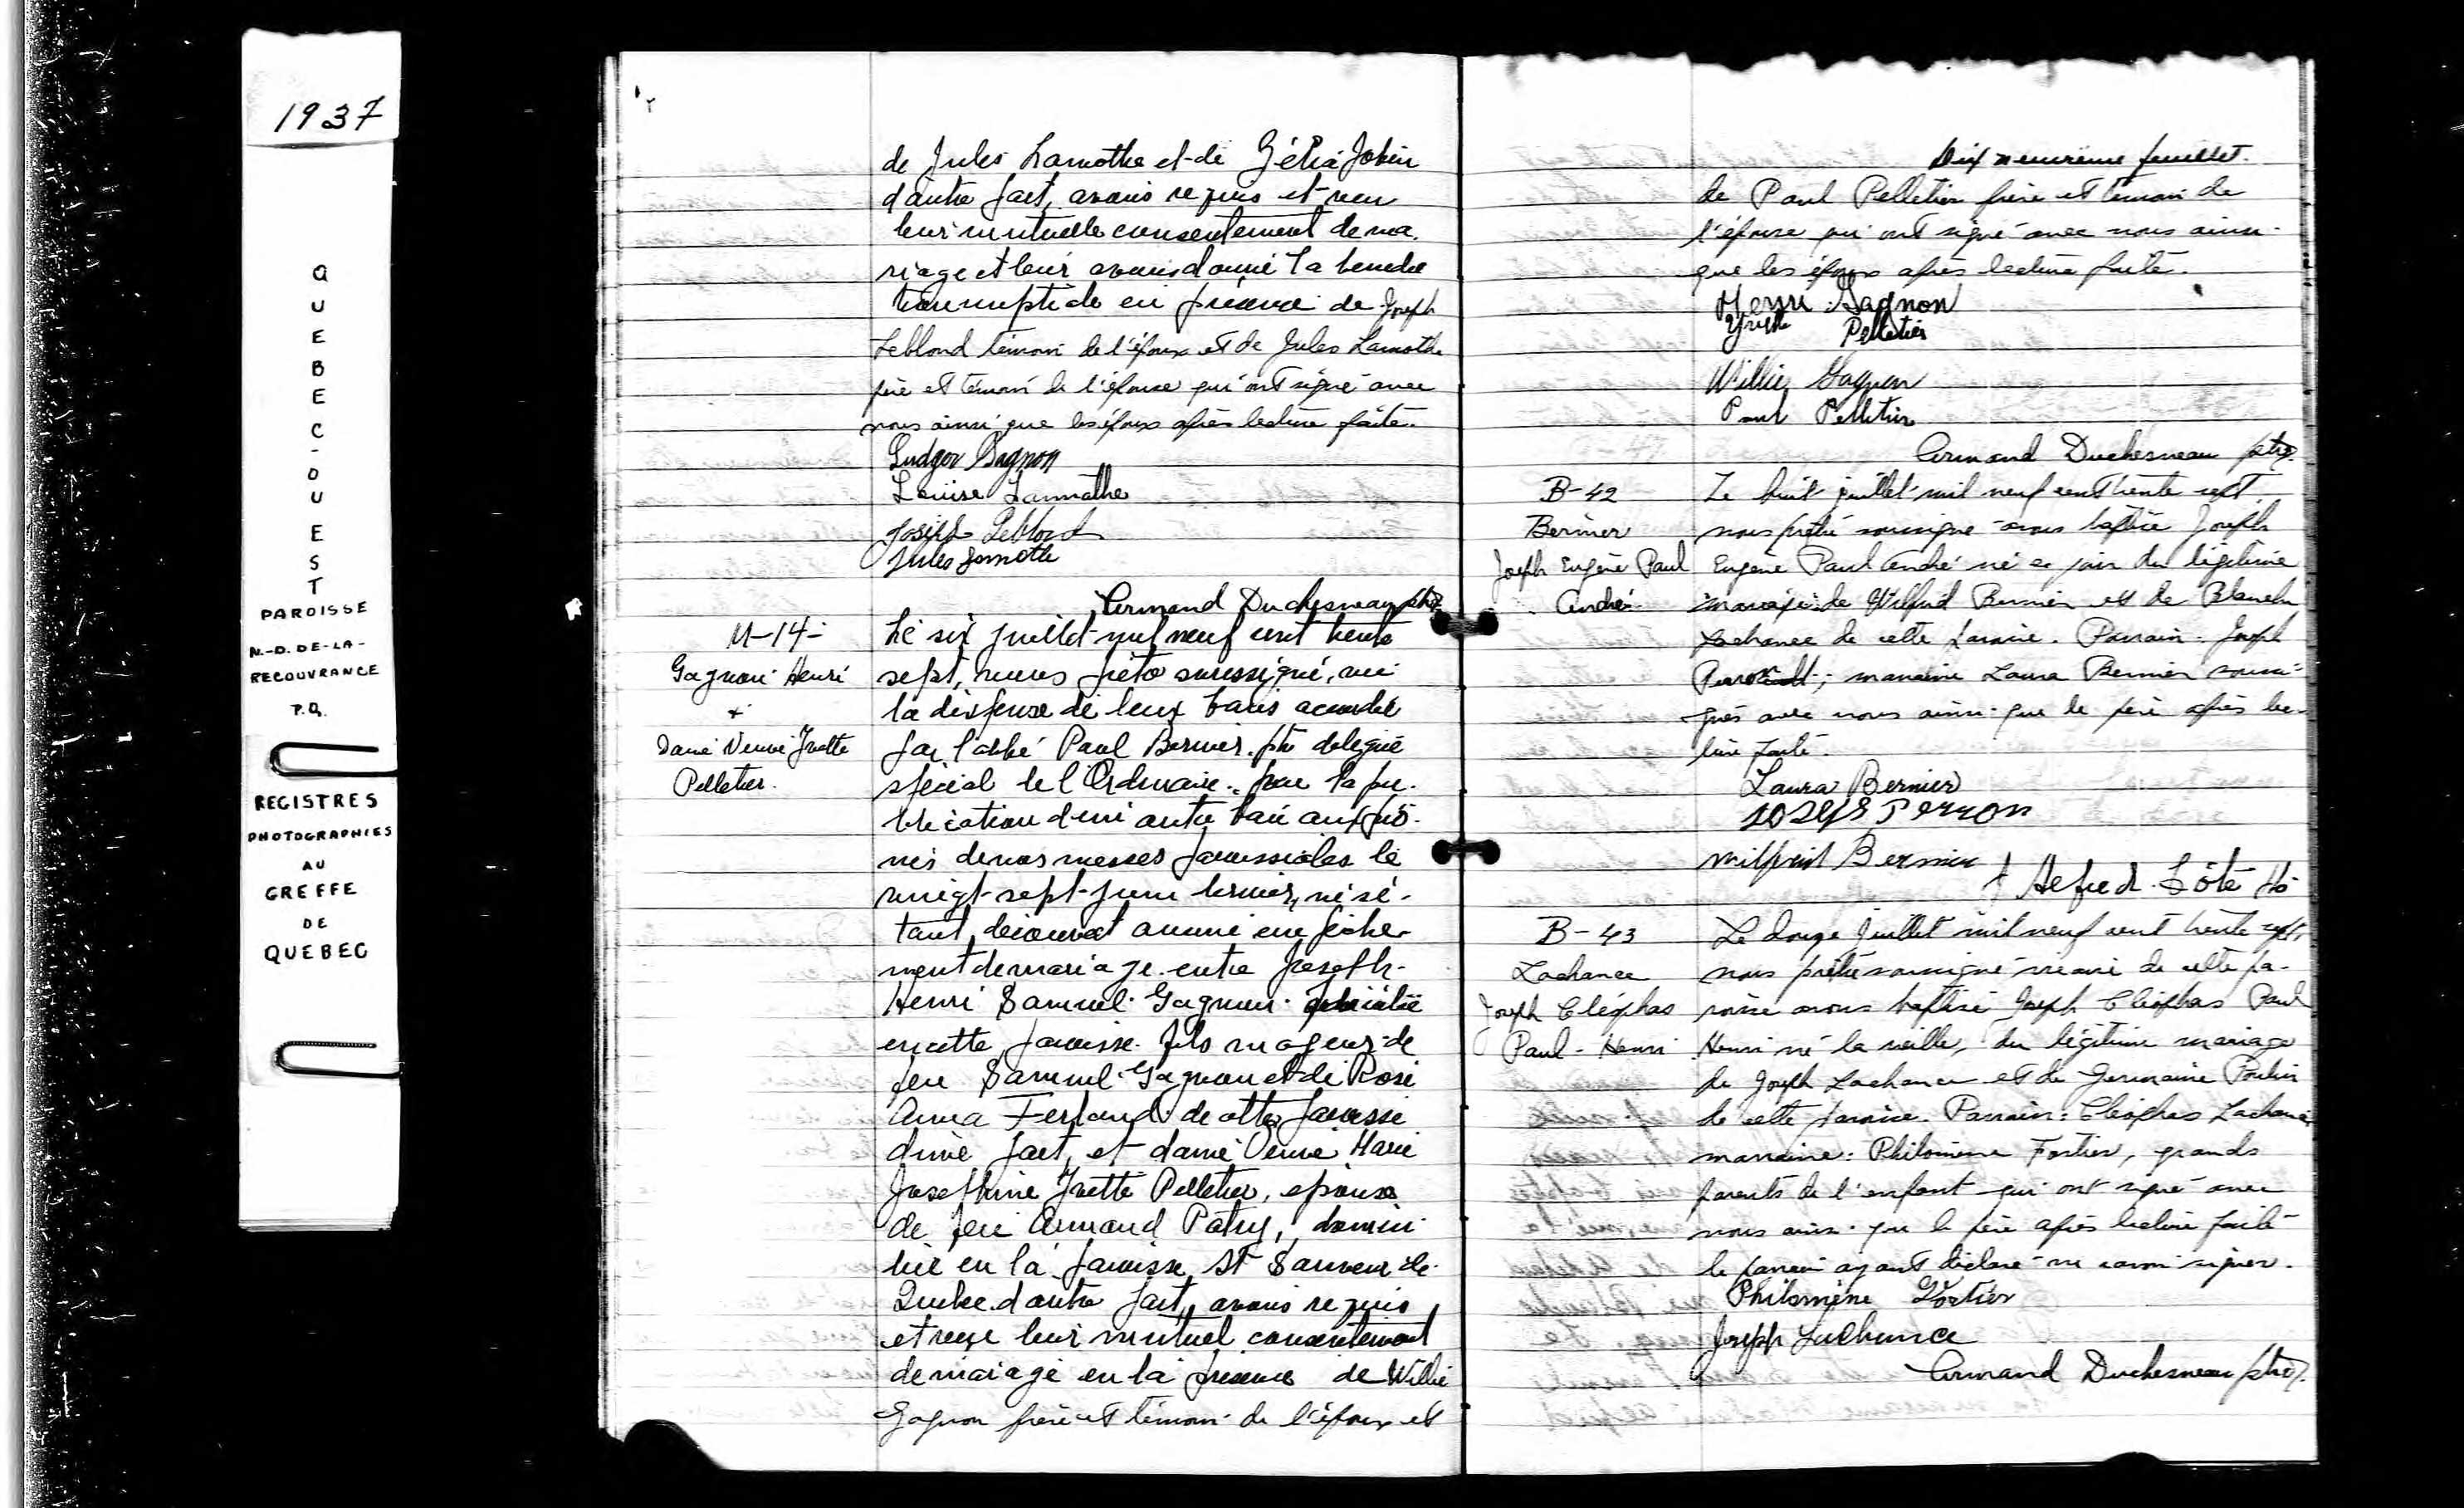 1937
QUEBEC-OUEST
PAROISSE
N.-D. DE-LA-
RECOUVRANCE
P.Q.
REGISTRES
PHOTOGRAPHIES
AU
GREFFE
DE
QUEBEC
de Jules Lamothe et de Jobin
d'autre part, avons requis et reçu
leur mutuelle consentement de ma.
riage et leur avons donné la bénédic
tion nuptiale en présence de Joseph
Leblond témoin de l'époux et de Jules Lamothe
père et témoin de l'épouse qui ont signé avec
nous ainsi que les époux après lecture faite.
Ludger Gagnon
Louise Lamothe
Joseph Leblond
Jules Lamothe
Armand Duchesneau ptre
M-14-
Gagnon Henri
+
Dame Veuve Yvette
Pelletier.
Le six juillet mil neuf cent trente
sept, nous prêtre soussigné, vu
la dispense de deux bans accordée
par l'abbé Paul Bernier ptre délégué
spécial de l'Ordinaire. vu la pu-
blication d'un autre ban au prô-
ne de nos messes paroissiales le
vingt-sept juin dernier, ne s'é-
tant découvert aucun empêche-
ment de mariage entre Joseph-
Henri Samuel Gagnon domicilié
en cette paroisse. fils majeur de
feu Samuel Gagnon et de Rose
Anna Ferland de cette paroisse
d'une part, et dame Veuve Marie
Josephine Yvette Pelletier, épouse
de feu Armand Patry, domici
lié en la paroisse St Sauveur de
Québec d'autre part, avons requis
et reçu leur mutuel consentement
de mariage en la présence de Willie
Gagnon frère et témoin de l'époux et
Dix neuvième feuillet.
de Paul Pelletier frère et témoin de
l'épouse qui ont signé avec nous ainsi
que les époux après lecture faite.
Henri Gagnon
Yvette Pelletier
Willie Gagnon
Paul Pelletier
Armand Duchesneau ptre.
B-42
Bernier
Joseph Eugène Paul
André
Le huit juillet mil neuf cent trente sept
nous prêtre soussigné avons baptisé Joseph
Eugène Paul André né ce jour du légitime
mariage de Wilfrid Bernier et de Blanche
Lachance de cette paroisse. Parrain: Joseph
; marraine Laura Bernier soussi-
gnés avec nous ainsi que le père après lec-
ture faite.
Laura Bernier
Joseph Perron
Wilfrid Bernier
Alfred Côté
B-43
Lachance
Joseph Cléophas
Paul-Henri
Le douze juillet mil neuf cent trente sept,
nous prêtre soussigné vicaire de cette pa-
roisse avons baptisé Joseph Cléophas Paul
Henri né la veille, du légitime mariage
de Joseph Lachance et de Germaine Poulin
de cette paroisse. Parrain: Cléophas Lachance
marraine: Philomène Fortier, grands
parents de l'enfant qui ont signé avec
nous ainsi que le père après lecture faite
le parrain ayant déclaré ne savoir signer.
Philomène Fortier
Joseph Lachance
Armand Duchesneau ptre.